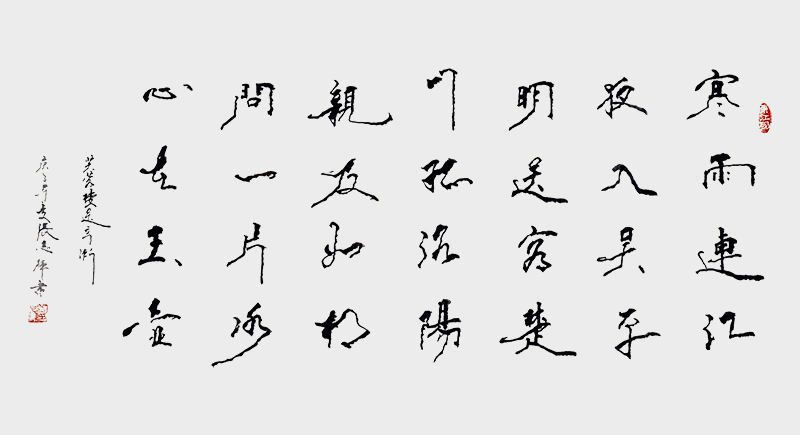 寒雨連江
夜入吴平
明送客楚
山孤洛陽
親友如相
問一片冰
心在玉壺
芙蓉樓送辛漸
庚子年夏張志書